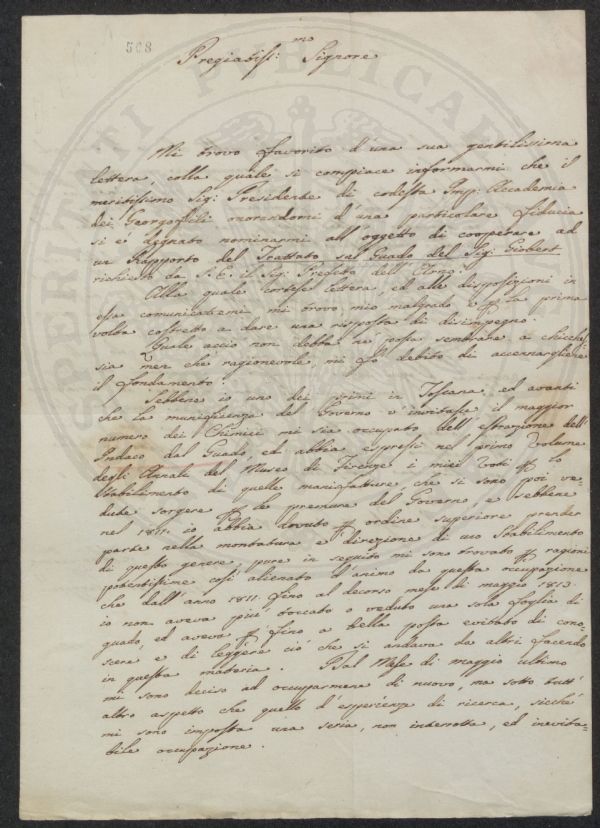 508
Pregiabiss:mo Signore
Mi trovo favorito d'una sua gentilissima
lettera colla quale si compiace informarmi che il
meritissimo Sig: Presidente di codesta Imp: Accademia
dei Georgofili onorandomi d'una particolare fiducia
si è degnato nominarmi all'oggetto di cooperare ad
un Rapporto del Trattato sul Guado del Sig: Giobert
richiesto da S. E. il Sig: Prefetto dell'Arno.
Alla quale cortese lettera, ed alle disposizioni in
essa comunicatemi mi trovo mio malgrado e p la prima
volta costretto a dare una risposta di disimpegno.
Quale acciò non debba ne possa sembrare a chicches=
sia men che ragionevole, mi fo debito di accennargliene
il fondamento.
Sebbene io uno dei primi in Toscana, ed avanti
che la munificenza del Governo v'invitasse il maggior
numero dei Chimici mi sia occupato dell'estrazione dell'
Indaco dal Guado, ed abbia espressi nel primo Volume
degli Annali del Museo di Firenze i miei Voti p lo
stabilimento di quelle manifatture, che si sono poi ve=
dute sorgere p le premure del Governo, e sebbene
nel 1811. io abbia dovuto p ordine superiore prender
parte nella montatura e direzione di uno Stabilimento
di questo genere, pure in seguito mi sono trovato p ragioni
potentissime così alienato l'animo da questa occupazione
che dall'anno 1811. fino al decorso mese di maggio 1813.
io non aveva più toccato o veduto una sola foglia di
guado, ed aveva p fino a bella posta evitato di cono=
scere e di leggere ciò che si andava da altri facendo
in questa materia. Dal Mese di maggio ultimo
mi sono deciso ad occuparmene di nuovo, ma sotto tutt'
altro aspetto che quello d'esperienza di ricerca, sicchè
mi sono imposta una seria, non interrotta, ed inevita=
bile occupazione.
SPERITATI PUBLICAE